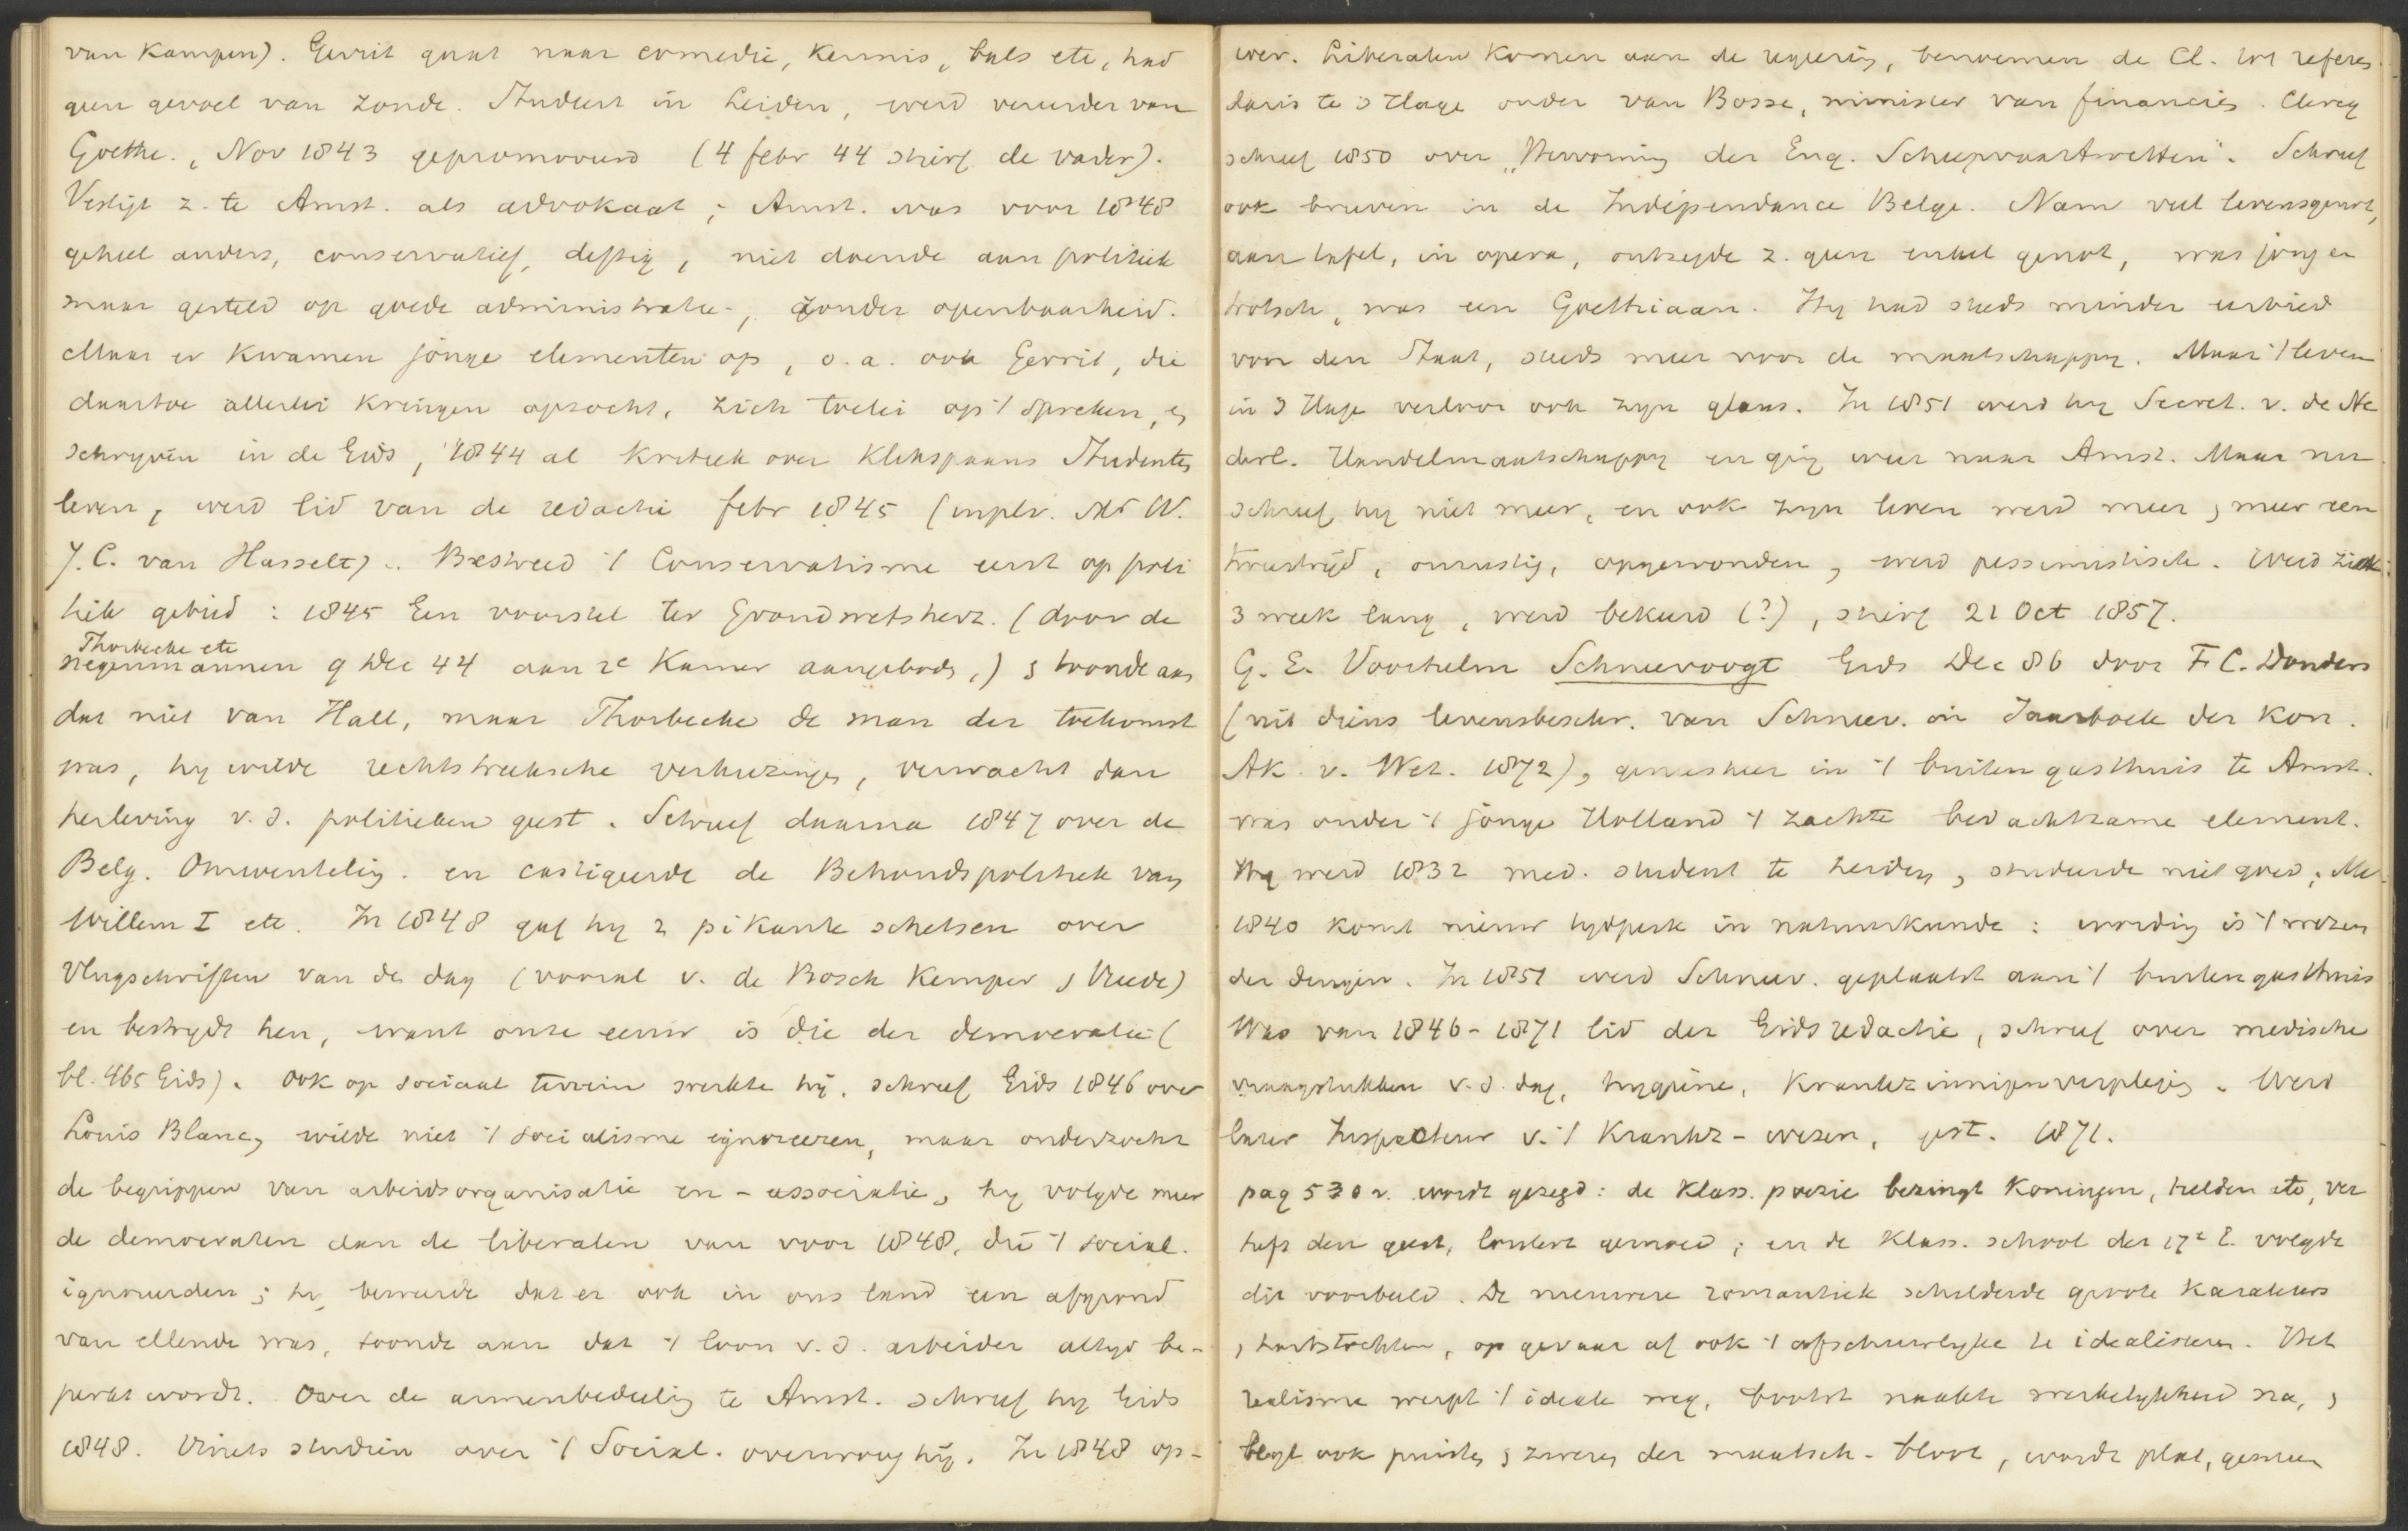 van Kampen). Gerrit gaat naar comedie, kermis, bals etc, had
geen gevoel van zonde. Student in Leiden, werd vereerder van
Goethe., Nov 1843 gepromoveerd (4 febr 44 stierf de vader).
Vestigt z. te Amst. als advokaat; Amst. was voor 1848
geheel anders, conservatief, deftig, niet doende aan politiek
maar gesteld op goede administratie-, zonder openbaarheid.
Maar er kwamen jonge elementen op, o.a. ook Gerrit, die
daartoe allerlei kringen opzocht, zich toelei op 't spreken, en
schryven in de Gids, 1844 al kritiek over Klikspaans Studenten
leven, werd lid van de redactie febr 1845 (in plv. Mr W.
J.C. van Hasselt). Bestreed 't Conservatisme eerst op poli
tiek gebied: 1845 Een voorstel ter Grondwetsherz. (door de
Thorbecke etc
negenmannen 9 Dec 44 aan 2e Kamer aangeboden,) toonde aan
dat niet van Hall, maar Thorbecke de man der toekomst
was, hy wilde rechtstreeksche verkiezingen, verwacht dan
herleving v.d. politieken geest. Schreef daarna 1847 over de
Belg. Omwenteling. en castigeerde de Behoudspolitiek van
Willem I etc. In 1848 gaf hy 2 pikante schetsen over
Vlugschriften van de dag (vooral v. de Bosch Kemper, Vreede)
en bestrydt hen, want onze eeuw is die der democratie (
bl. 465 Gids). Ook op sociaal terrein werkte hij. schreef Gids 1846 over
Louis Blanc, wilde niet 't socialisme ignoreeren, maar onderzocht
de begrippen van arbeidsorganisatie en -associatie, hy volgde meer
de democraten dan de liberalen van voor 1848, die 't social.
ignoreerden; hy beweerde dat er ook in ons land een afgrond
van ellende was, toonde aan dat 't loon v.d. arbeider altyd be-
perkt wordt. Over de armenbedeeling te Amst. schreef hy Gids
1848. Vinets studien over 't Social. overwoog hij. In 1848 op-
wer. Liberalen komen aan de regering, benoemen de Cl. tot referen
daris te 's Hage onder van Bosse, minister van financiën. Clercq
schreef 1850 over "Hervorming der Eng. Scheepvaartwetten". Schreef
ook brieven in de Indépendance Belge. Nam veel levensgenot,
aan tafel, in opera, ontzegde z. geen enkel genot, was jong en
trotsch, was een Goethiaan. Hy had steeds minder eerbied
voor den Staat, steeds meer voor de maatschappy. Maar 't leven
in 's Hage verloor ook zyn glans. In 1851 werd hy Secret. v. de Ne
derl. Handelmaatschappy en ging weer naar Amst. Maar nu
schreef hy niet meer, en ook zyn leven werd meer, meer een
kruistrijd, onrustig, opgewonden, werd pessimistisch. Werd ziek
3 week lang, werd bekeerd (?), stierf 21 Oct 1857.
G. E. Voorhelm Schneevoogt Gids Dec 86 door F.C. Donders
(uit diens levensbeschr. van Schneev. in Jaarboek der Kon.
Ak. v. Wet. 1872), geneesheer in 't buitengasthuis te Amst.
was onder 't jonge Holland 't zachte bedachtzame element.
Hy werd 1832 med. student te Leiden, studeerde niet goed;
1840 komt nieuw tydperk in natuurkunde: eenvoudig is 't wezen
der dingen. In 1851 werd Schneev. geplaatst aan 't buitengasthuis
Was van 1846-1871 lid der Gidsredactie, schreef over medische
vraagstukken v.d. dag, hygiëne, Krankzinnigenverpleging. Werd
later Inspecteur v. 't Krankz-wezen, gest. 1871.
pag 530 v. wordt gezegd: de Klass. poezie bezingt Koningen, helden etc, ver
heft den geest, loutert gemoed; en de Klass. school der 17e E. volgde
dit voorbeeld. De nieuwere romantiek schilderde groote karakters
, hartstochten, op gevaar af ook 't afschuwelyke te idealiseren. Het
realisme werpt 't ideale weg, bootst naakte werkelykheid na,
legt ook puisten, zweren der maatsch. bloot, wordt plat, gemeen